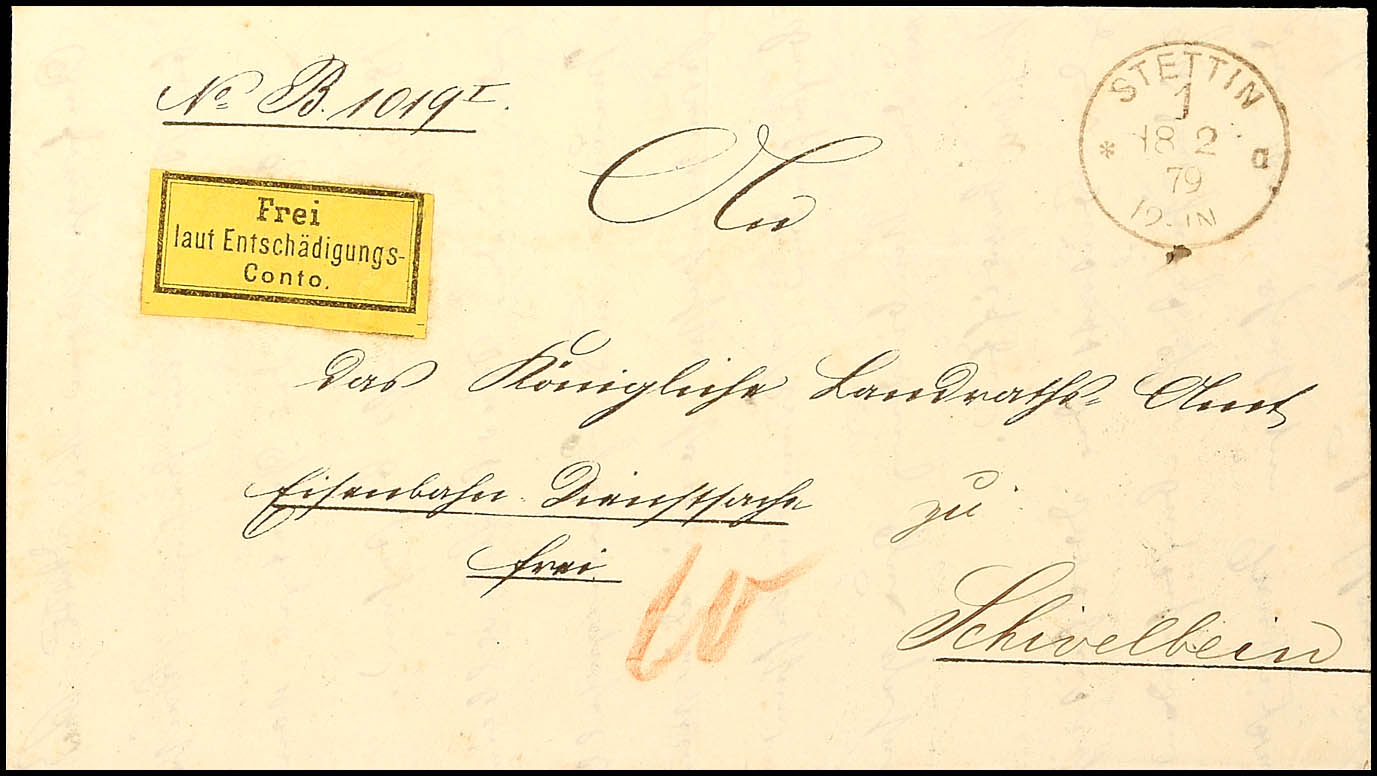 No B. 1019 I.
STETTIN
1
18 2
79
* a
12-1N
An
Frei
laut Entschädigungs-
Conto.
das Königliche Landraths-Amt
Eisenbahn-Dienstsache
zu
frei.
10
Schivelbein